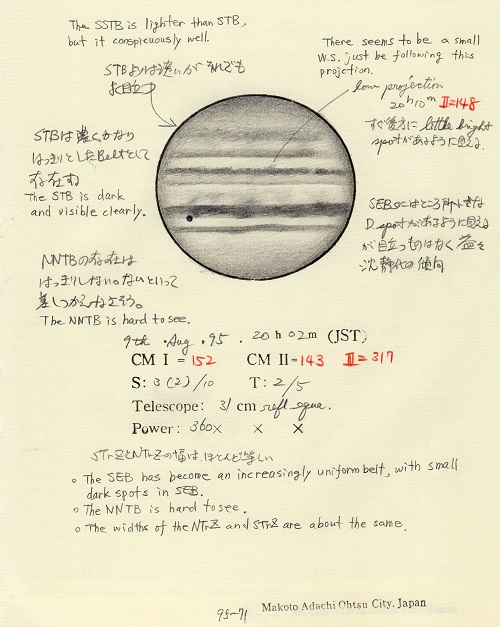 The SSTB is lighter than STB,
but it conspicuously well.
STBよりは淡いが それでも
よく目立つ
There seems to be a small
W.S. just be following this
projction.
low projection
20h10m II=148
すぐ後方に little bright
spotがあるように見える
STBは濃くかなり
はっきりとしたBeltとして
存在す
The STB is dark
and visible clearly.
SEBにはところどころ小さな
D.spotがあるように見える
が目立つものはなく 益々
沈静化の傾向
NNTBの存在は
はっきりしない。ないといって
差しつかえなさそう。
The NNTB is hard to see.
9th .Aug .95 . 20h 02m (JST)
CM I = 152 CM II=143 III=317
S: 3(2)/10 T: 2/5
Telescope: 31 cm refl. equa.
Power: 360× × ×
STrZとNTrZの幅は ほとんど等しい
○ The SEB has become an increasingly uniform belt, with small
dark spots in SEB.
○ The NNTB is hard to see.
○ The widths of the NTrZ and STrZ are about the same.
95-71 Makoto Adachi Ohtsu City. Japan